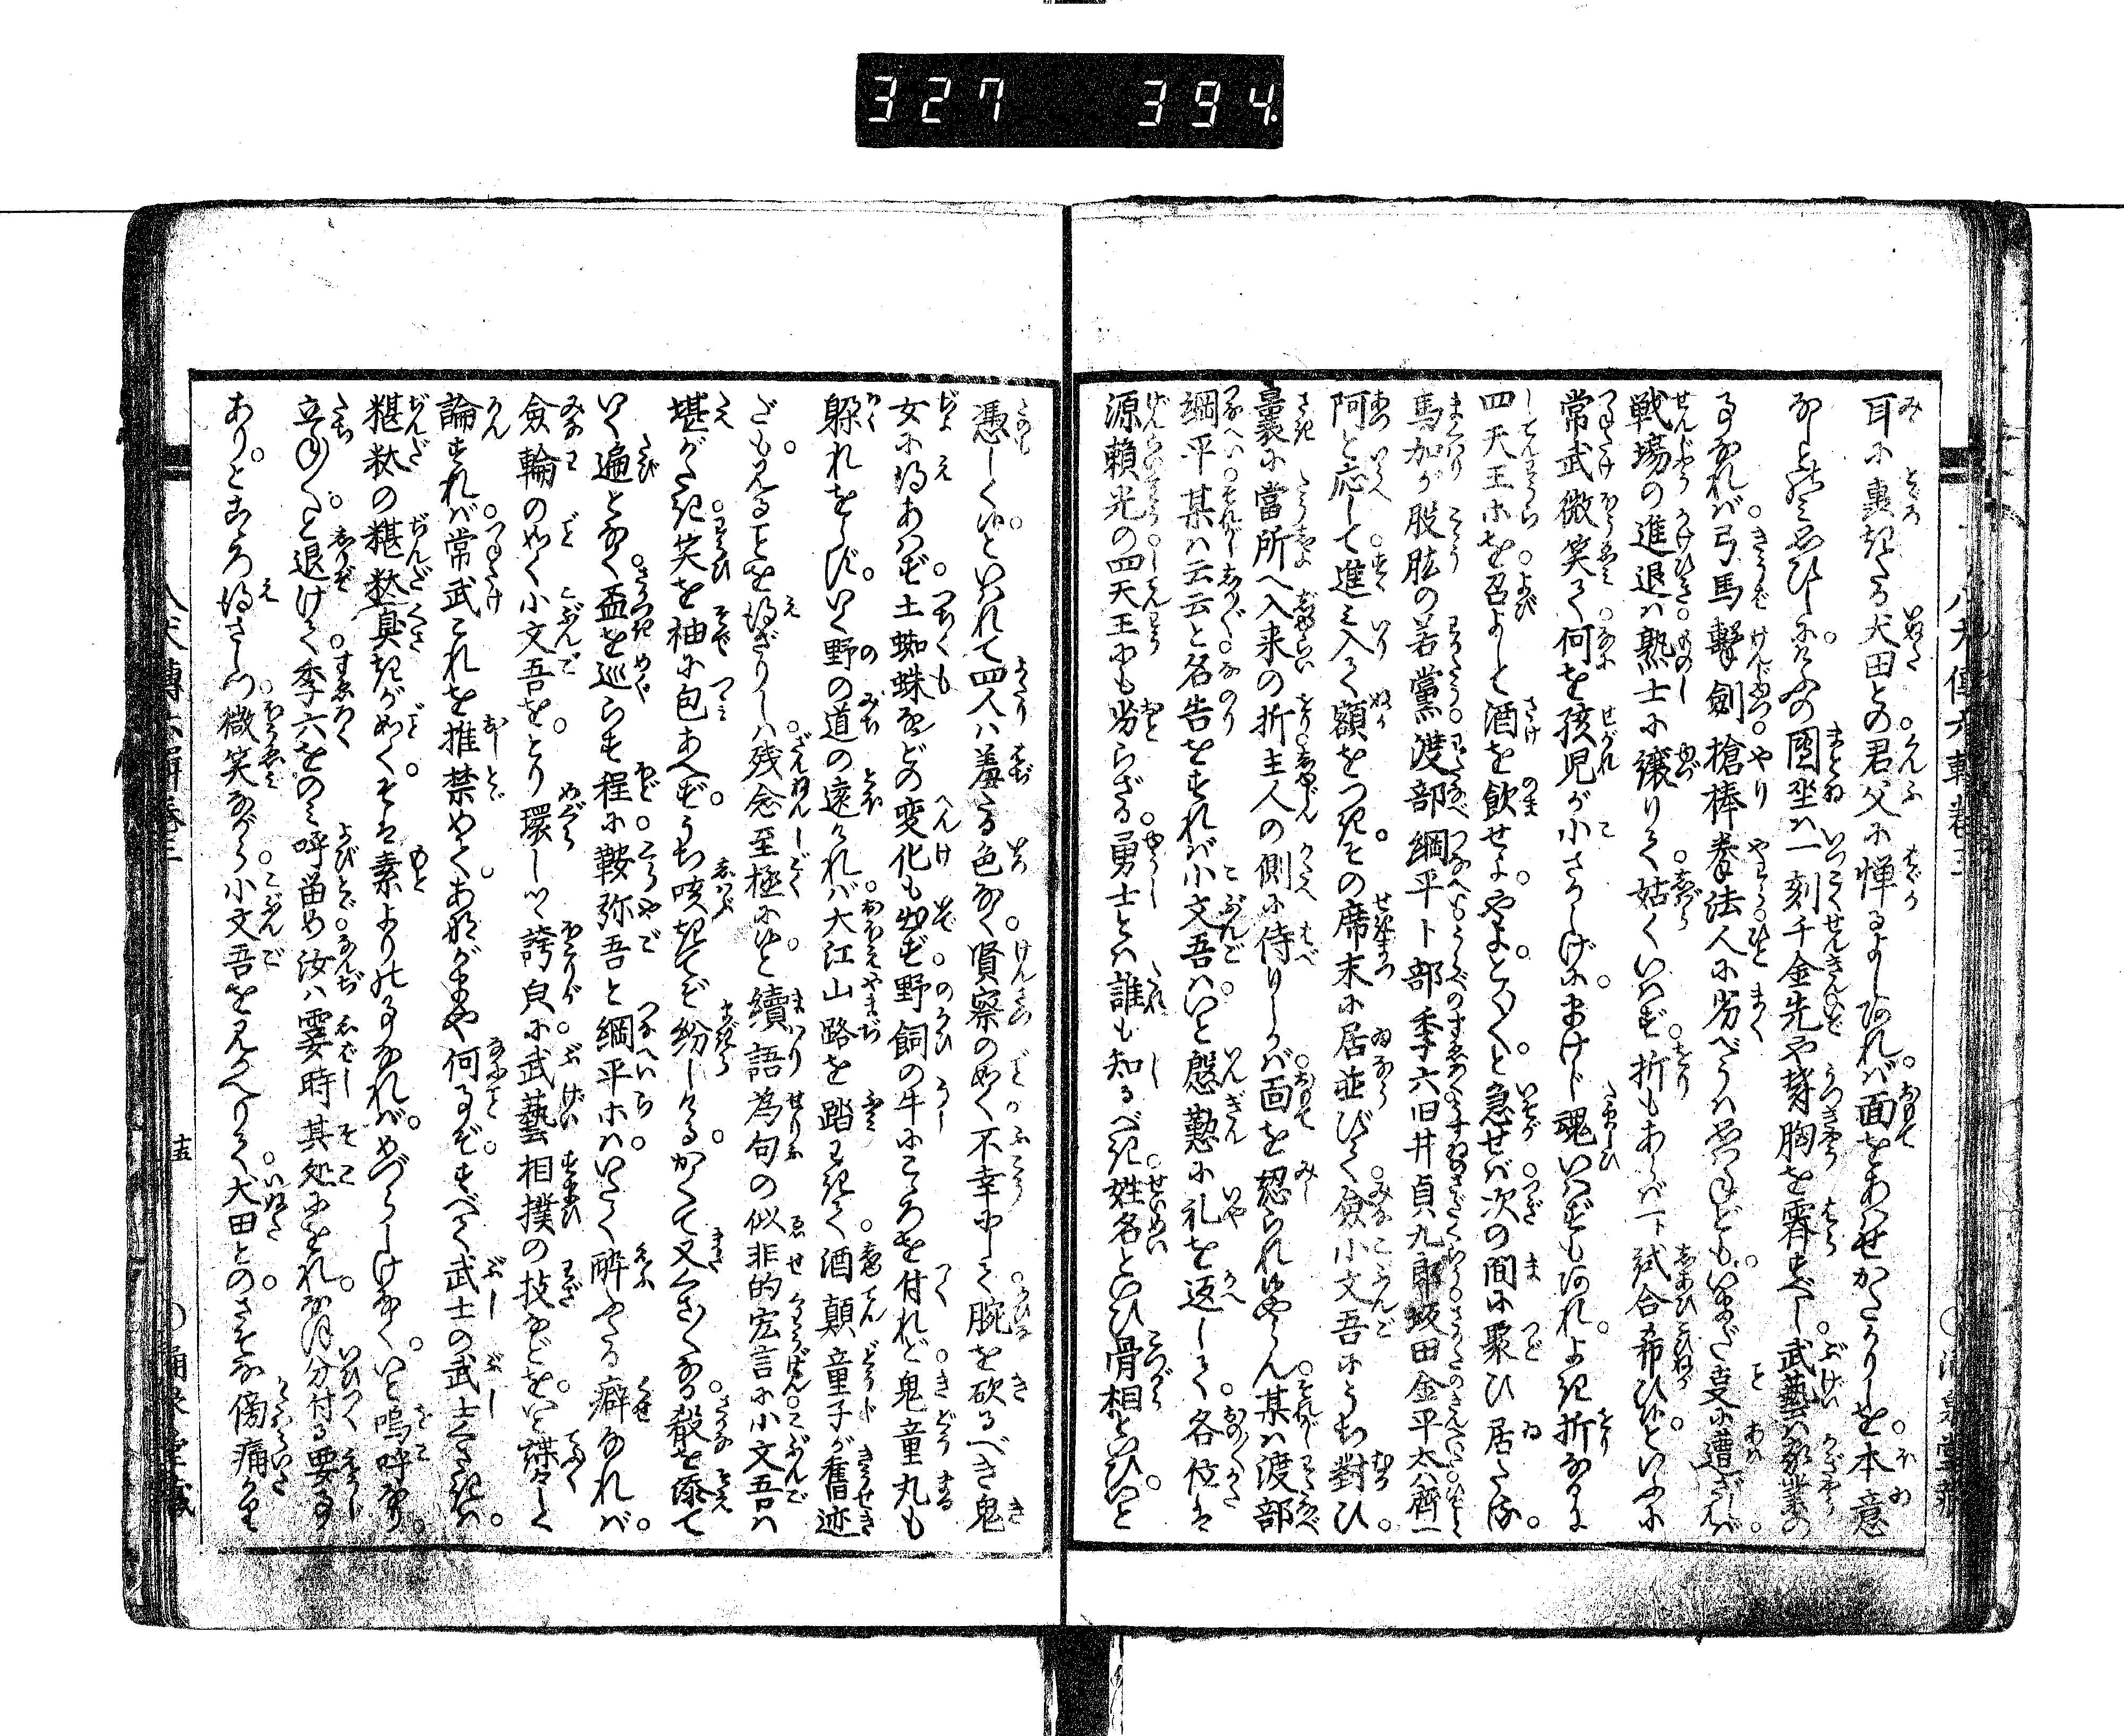 327 394
耳に轟きたる犬田との君父に憚るよしあれば面をあはせかたかりしを本意
なしとのみ思ひしにけふの團坐は一刻千金先や鬱胸を霽すべし武藝は家業の
事なれば弓馬撃劍槍棒拳法人に劣べうは思はねどもいまだ事に遭ざれば
戦場の進退は熟士に譲りて姑くいはず折もあらば一ト試合希ひ侍といふに
常武微笑て何を孩児が小さかしげにまけじ魂いはずもあれよき折なるに
四天王ホを召よしと酒を飲せよやよとく〳〵と急せば次の間に聚ひ居たる
馬加が股肱の若黨渡部綱平卜部季六旧井貞九郎坂田金平太齊一
阿と応して進み入て額をつきその席末に居並びて僉小文吾にうち對ひ
曩に當所へ入来の折主人の側に侍りしかば面を認られけやらん某は渡部
綱平某は云云と名告をすれば小文吾はいと慇懃に礼を返して各位は
源頼光の四天王にも劣らざる勇士とは誰も知るべき姓名といひ骨相といひいと
憑しく侍といはれて四人は羞たる色なく賢察の如く不幸にして腕を砍るべき鬼
女に得あはず土蜘蛛などの変化も出ず野飼の牛にこゝろを付れど鬼童丸も
躱れをらずいく野の道の遠ければ大江山路を踏わきて酒顛童子が舊迹
だも見ることを得ざりしは残念至極に侍と續語為句の似非的宏言に小文吾は
堪がたき笑を袖に包あへずうち咳きてぞ紛しけるかくて又さく〳〵なる殽を添て
いく遍となく盃を巡らす程に鞍弥吾と綱平ホはいたく酔たる癖なれば
僉輪の如く小文吾をとり環しつゝ誇皃に武藝相撲の技などをいと諜々しく
論すれば常武これを推禁めてあなかまや何事ぞすべて武士の武士くさきは
糂粏の糂粏臭きが如くそは素よりの事なればめづらしげなくいと嗚呼なり
立ね〳〵と退けて季六をのみ呼畄め汝は霎時其処にをれなほ分付る要事
ありとこゝろ得さしつ微笑ながら小文吾を見かへりて犬田とのさぞな傍痛く
八犬傳六輯巻三
十五